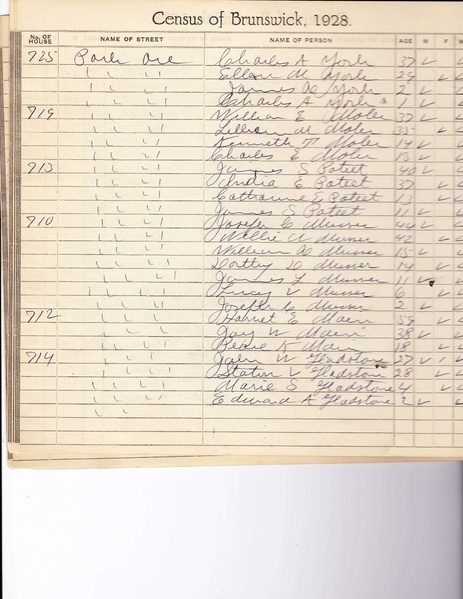 Census of Brunswick, 1928.
No. OF HOUSE NAME OF STREET NAME OF PERSON AGE M F W
725 Park Ave Charles A York 37
" " Ellen M York 29
" " James York 2
" " Charles A York 1
719 " " William E Moler 37
" " Lillian M Moler 35
" " Kenneth Moler 14
" " Charles E Moler 13
713 " " James S Poteet 40
" " India E Poteet 37
" " Catharine E Poteet 13
" " James S Poteet 11
710 " " Joseph C Munser 44
" " Nillie A Munser 42
" " William Munser 15
" " Munser 14
" " James L Munser 11
" " Lucy V Munser 6
" " Joseph Munser 2
712 " " Harriet E Main 59
" " Gay W Main 28
" " Main 18
714 " " W Gladstone 27
" " V Gladstone 28
" " Marie S Gladstone 4
" " Edward A Gladstone 2